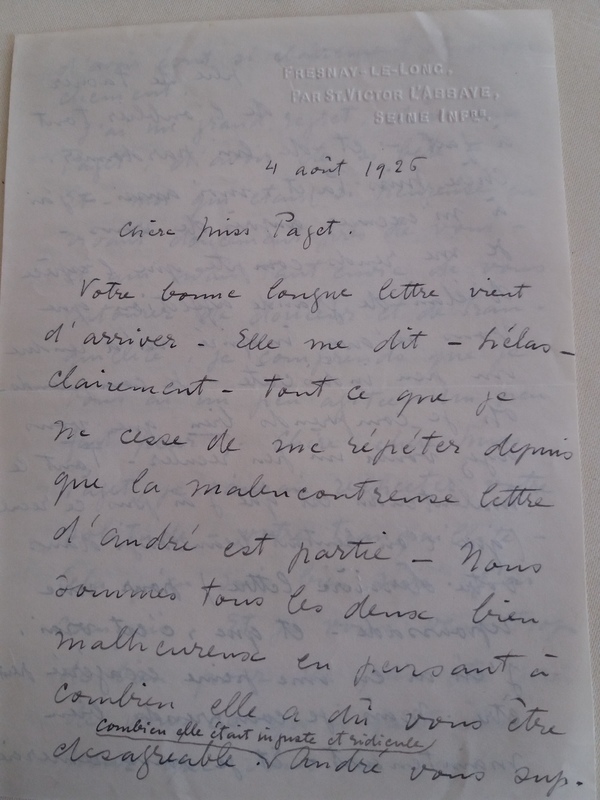 FRESNAY-LE-LONG,
PAR ST. VICTOR L'ABBAYE,
SEINE INFRE.
4 août 1926
Chère Miss Paget.
Votre bonne longue lettre vient
d'arriver - Elle me dit - hélas -
clairement - tout ce que je
ne cesse de me répéter depuis
que la malencontreuse lettre
d'André est partie - Nous
sommes tous les deux bien
malheureux en pensant à
combien elle a dû vous être
combien elle était injuste et ridicule
désagréable. André vous sup-